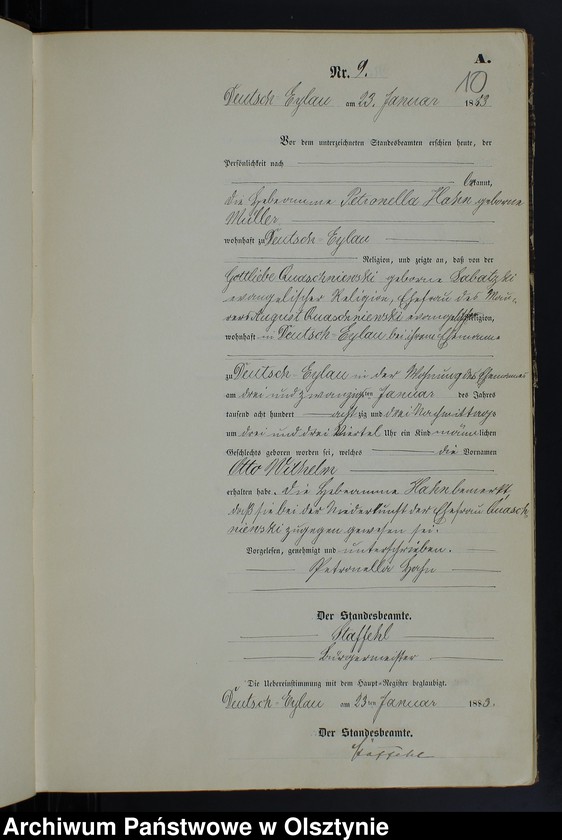 A.
Nr. 9.
10
Deutsch-Eylau am 23. Januar 1883
Vor dem unterzeichneten Standesbeamten erschien heute, der
Persönlichkeit nach
kannt,
die Hebeamme Petronella Hahn geborne
Müller
wohnhaft zu Deutsch-Eylau
Religion, und zeigte an, daß von der
Gottliebe Quaschniewski geborne Sabatzki
evangelischer Religion, Ehefrau des Mau-
rers August Quaschniewski evangelischer Religion,
wohnhaft in Deutsch-Eylau bei ihrem Ehemanne
zu Deutsch-Eylau in der Wohnung des Ehemannes
am drei und zwanzigsten Januar des Jahres
tausend acht hundert achtzig und drei Nachmittags
um drei und drei Viertel Uhr ein Kind männlichen
Geschlechts geboren worden sei, welches die Vornamen
Otto Wilhelm
erhalten habe. Die Hebeamme Hahn bemerkt,
daß sie bei der Niederkunft der Ehefrau Quasch
niewski zugegen gewesen sei.
Vorgelesen, genehmigt und unterschrieben.
Petronella Hahn
Der Standesbeamte.
Staffehl
Bürgermeister
Die Uebereinstimmung mit dem Haupt-Register beglaubigt.
Deutsch-Eylau am 23ten Januar 1883.
Der Standesbeamte.
Staffehl
Archiwum Państwowe w Olsztynie